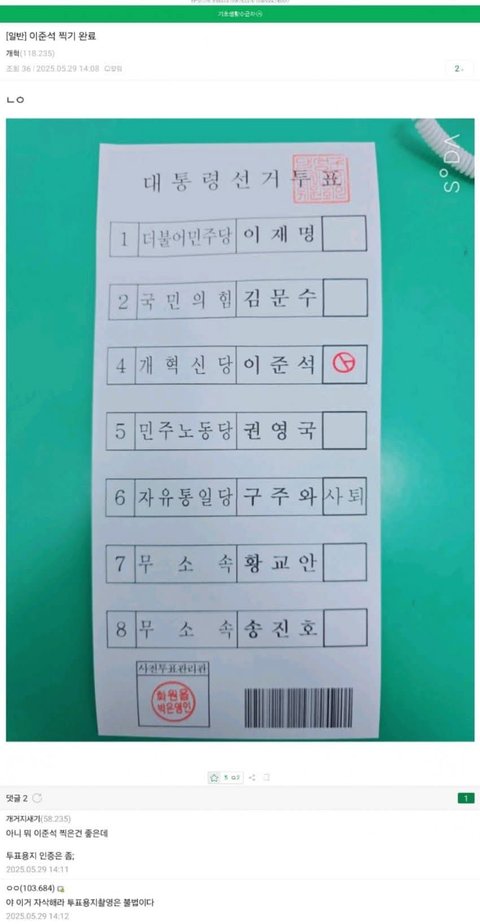 기초생활수급자(ㅇ)
[일반] 이준석 찍기 완료
개혁(118.235)
조회 36 | 2025.05.29 14:08
2
ㄴㅇ
대통령선거투표
1 더불어민주당 이재명
2 국민의힘 김문수
4 개혁신당 이준석
5 민주노동당 권영국
6 자유통일당 구주와 사퇴
7 무소속 황교안
8 무소속 송진호
사전투표관리관
댓글 2
1
개거지새기(58.235)
아니 뭐 이준석 찍은건 좋은데
투표용지 인증은 좀;
2025.05.29 14:11
ㅇㅇ(103.684)
야 이거 자삭해라 투표용지촬영은 불법이다
2025.05.29 14:12